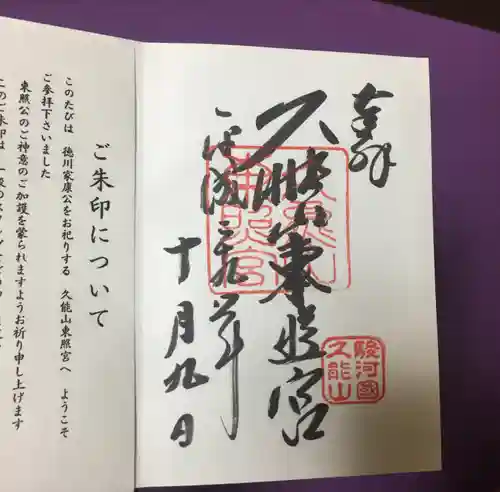 奉拝
久能山東照宮
平成二十九年
十月九日
久能山
東照宮
駿河國
久能山
ご朱印について
このたびは 徳川家康公をお祀りする 久能山東照宮へ ようこそ
ご参拝下さいました
東照公のご神意のご加護を蒙られますようお祈り申し上げます
このご朱印は